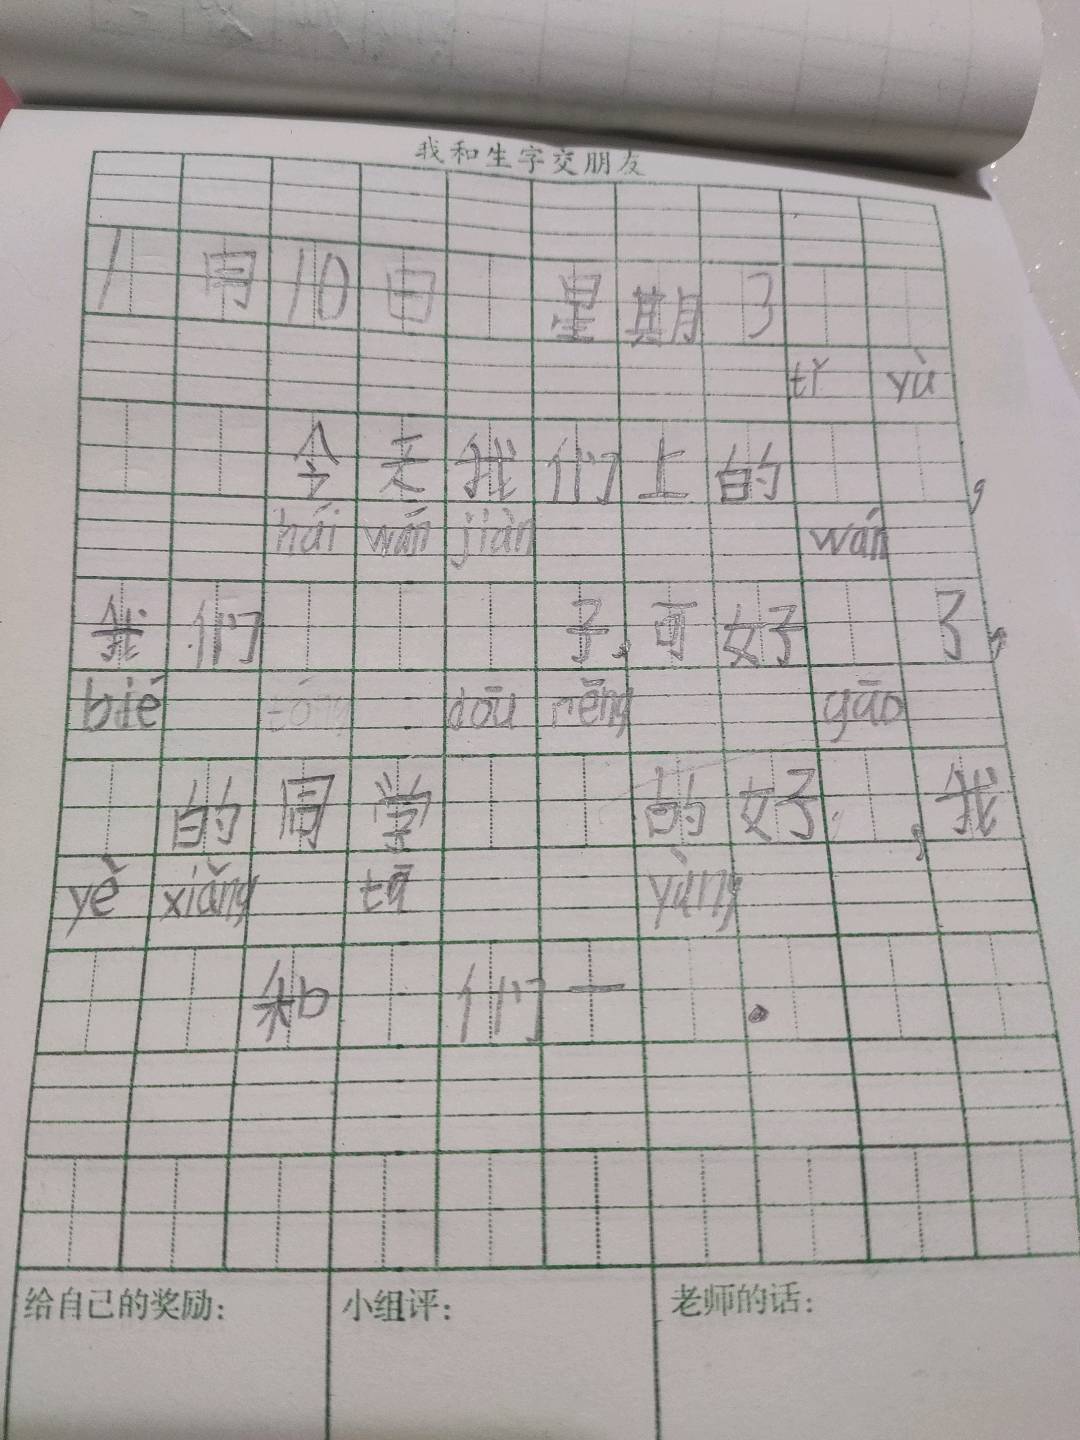 我和生字交朋友
1月10日 星期3
tǐ yù
今天我们上的 ,
hái wán jiàn wán
我们 子,可好 了,
bié dōu néng gāo
的同学 的好 ,我
yě xiǎng tā yàng
和 们一 .
给自己的奖励: 小组评: 老师的话: